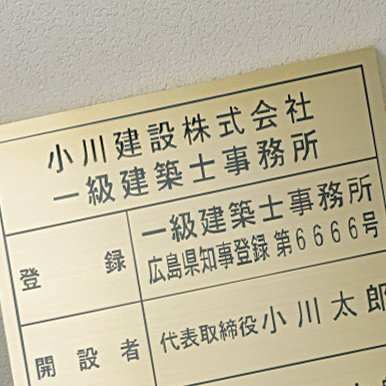 小川建設株式会社
一級建築士事務所
登録 一級建築士事務所
広島県知事登録 第6666号
開設者 代表取締役小川太郎